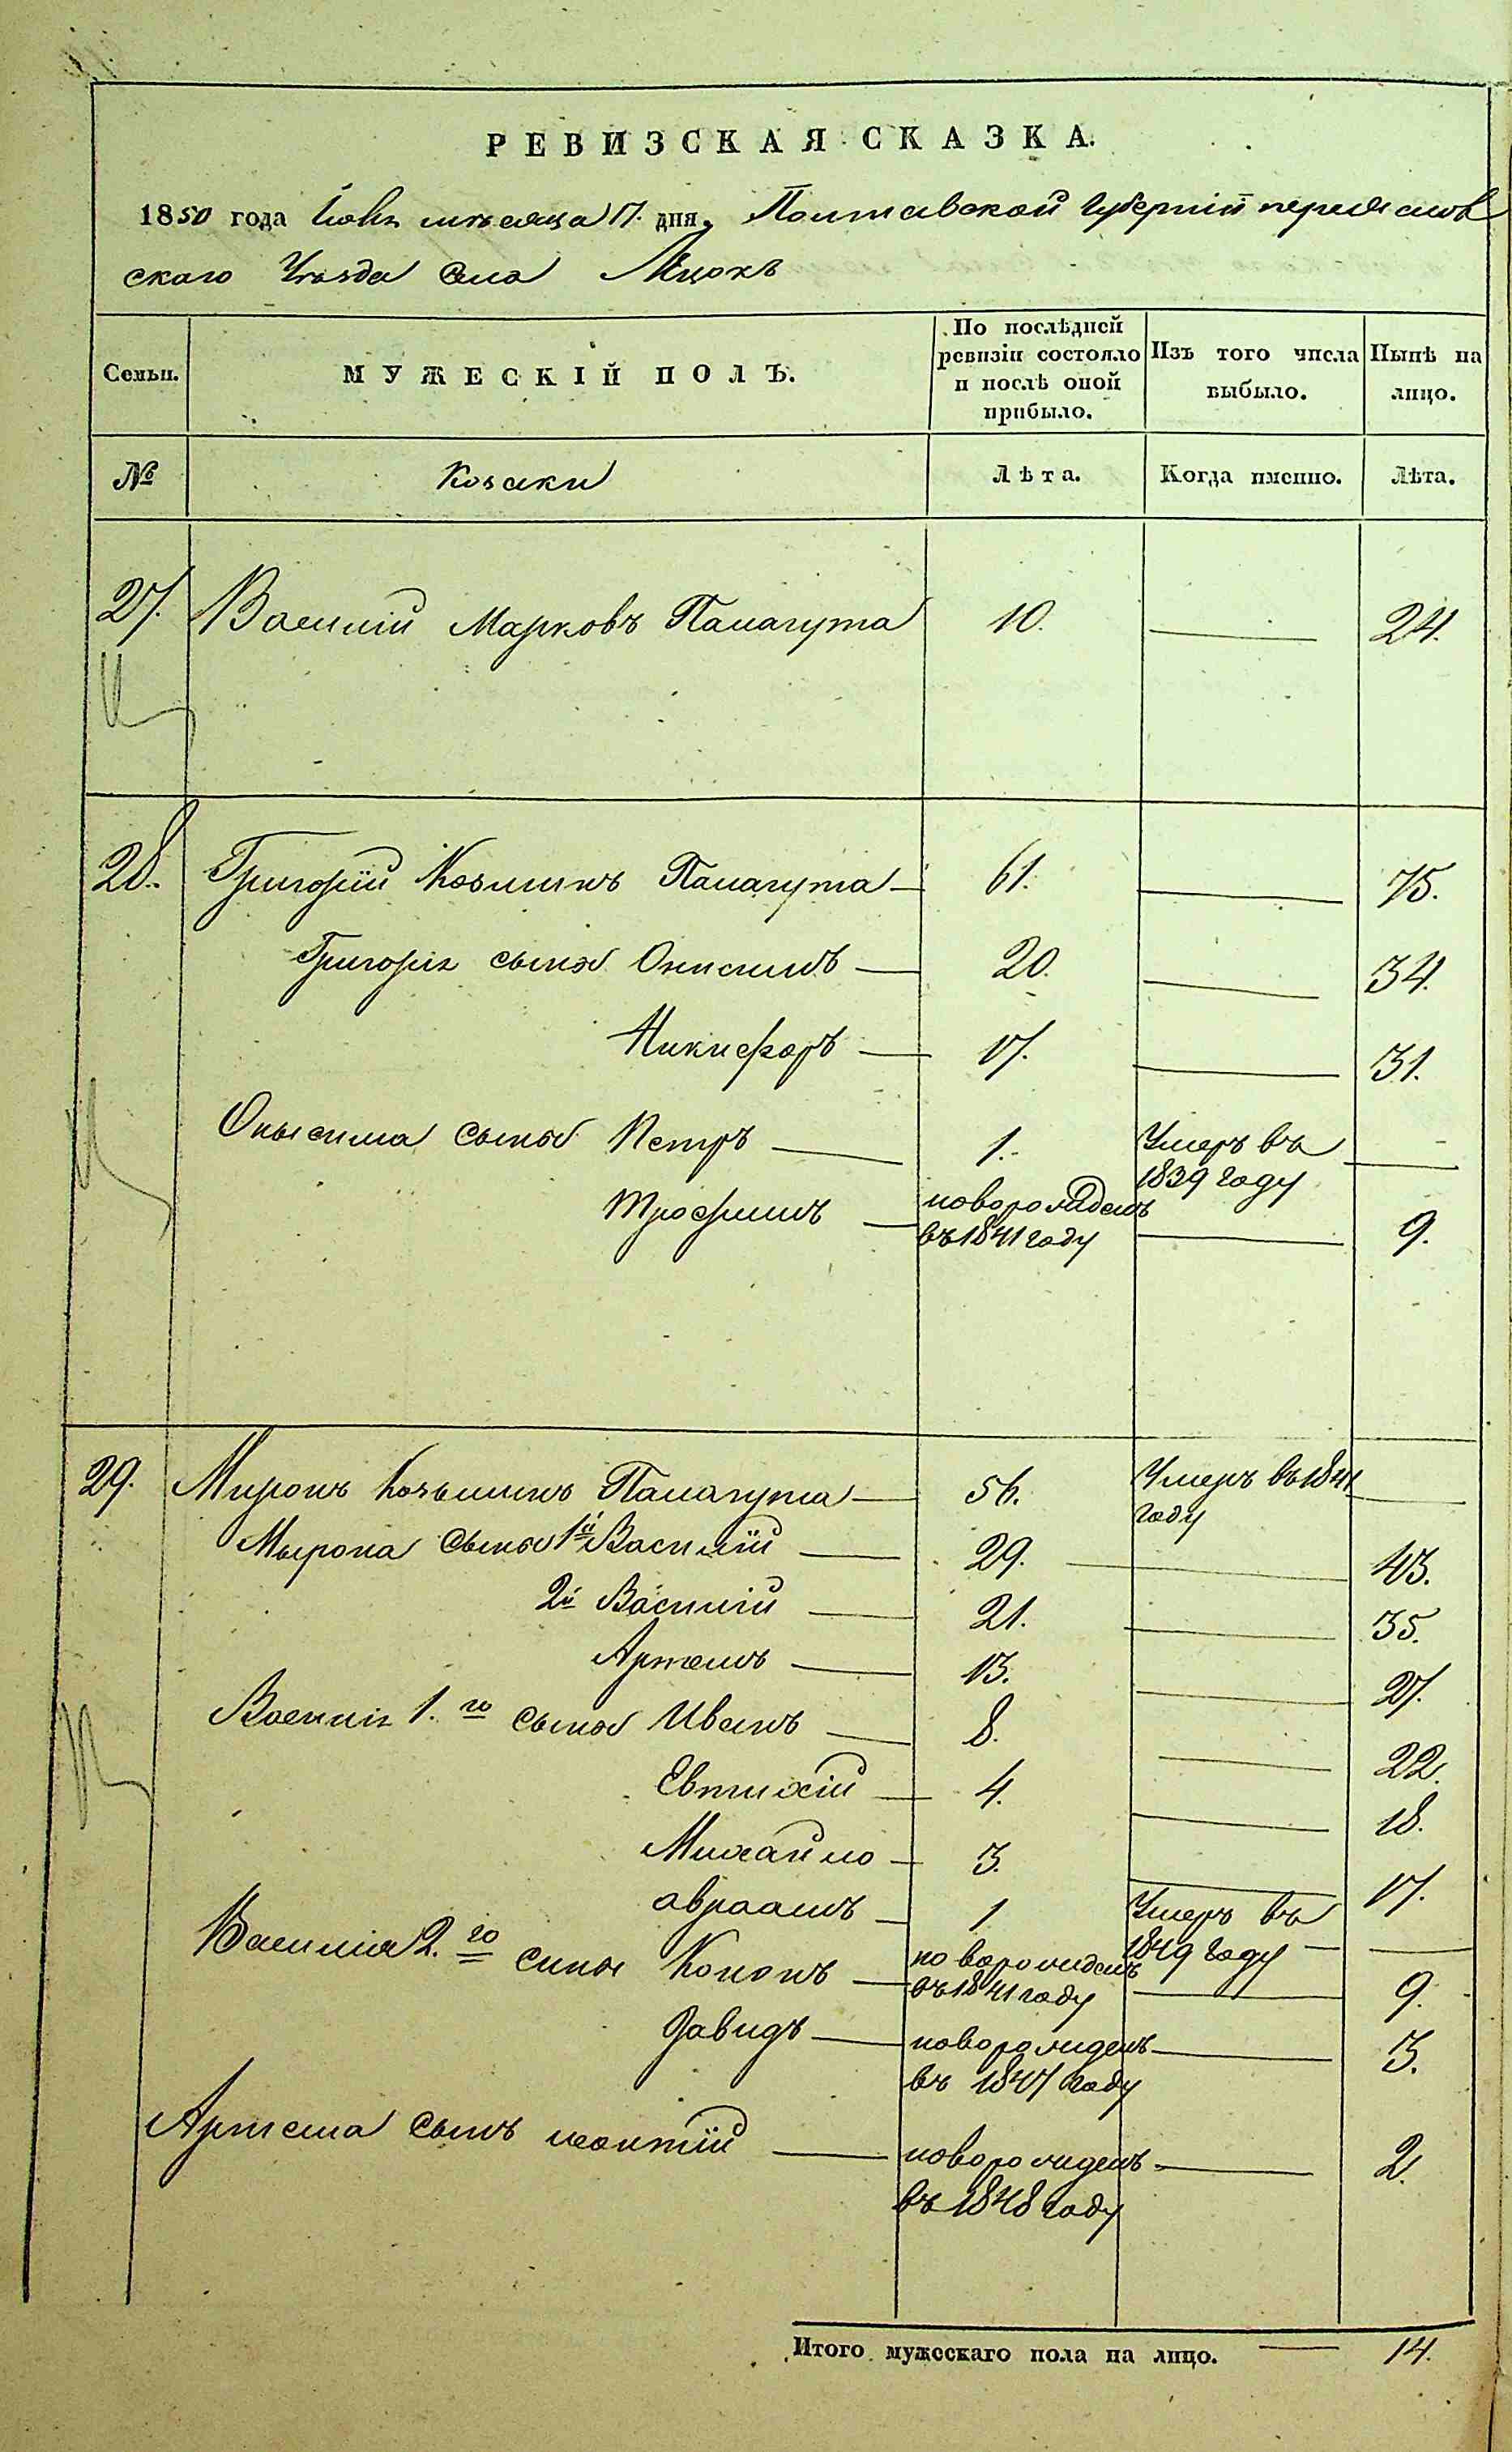 РЕВИЗСКАЯ СКАЗКА.
1850 года Іюня мѣсяца 17. дня, Полтавской Губерніи переяслов
скаго Уезда села
Семьи. МУЖЕСКІЙ ПОЛЪ. По послѣдней ревизіи состояло и послѣ оной прибыло. Изъ того числа выбыло. Нынѣ на лицо.
№ Козаки Лѣта. Когда именно. Лѣта.
27. Василій Марковъ Палагута 10. — 24.
28. Григорій Козьминъ Палагута — 61. — 75.
Григорія сыновя Онисимъ — 20. — 34.
Никифоръ — 17. — 31.
Онысима сыновя Петръ — 1. Умеръ въ 1839 году —
Трофимъ — новорожденъ въ 1841 году — 9.
29. Миронъ Козьминъ Палагута — 56. Умеръ въ 1841 году —
Мырона сыновя 1й Василій — 29. — 43.
2й Василій — 21. — 35.
Артемъ — 13. — 27.
Василія 1.го сыновя Иванъ — 8. — 22.
Евтихій — 4. — 18.
Михайло — 3. — 17.
авраамъ — 1 Умеръ въ 1849 году — —
Василія 2.го сины Кононъ — новорожденъ въ 1841 году — 9.
Давидъ — новорожденъ — 3.
въ 1847 году
Артема сынъ леонтій — новорожденъ — 2.
въ 1848 году
Итого мужескаго пола на лицо. — 14.